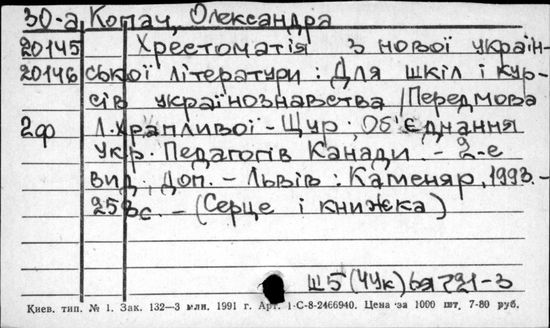 30-а Копач, Олександра
20145 Хрестоматія з нової україн-
20146 ської літератури : Для шкіл і кур-
сів українознавства / Передмова
2ф Л. Храпливої-Щур ; Об'єднання
укр. Педагогів Канади. - 2-е
вид., доп. - Львів : Каменяр, 1993. -
253с. - (Серце і книжка)
Ш5(4Ук)6я721-3
Київ. тип. № 1. Зак. 132—3 млн. 1991 г. Арт. 1-С-8-2466940. Цена за 1000 шт. 7-80 руб.